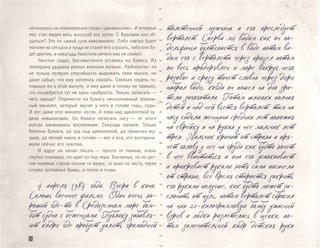 наткнулся на новоязовское слово «двоемыслие». И впервые
ему стал виден весь масштаб его затеи. С будущим как об-
щаться? Это по самой сути невозможно. Либо завтра будет
похоже на сегодня и тогда не станет его слушать, либо оно бу-
дет другим, и невзгоды Уинстона ничего ему не скажут.
Уинстон сидел, бессмысленно уставясь на бумагу. Из
телекрана ударила резкая военная музыка. Любопытно: он
не только потерял способность выражать свои мысли, но
даже забыл, что ему хотелось сказать. Сколько недель го-
товился он к этой минуте, и ему даже в голову не пришло,
что потребуется тут не одна храбрость. Только записать —
чего проще? Перенести на бумагу нескончаемый тревож-
ный монолог, который звучит у него в голове годы, годы.
И вот даже этот монолог иссяк. А язва над щиколоткой зу-
дела невыносимо. Он боялся почесать ногу — от этого
всегда начиналось воспаление. Секунды капали. Только
белизна бумаги, да зуд над щиколоткой, да гремучая му-
зыка, да легкий хмель в голове — вот и все, что воспринима-
ли сейчас его чувства.
И вдруг он начал писать — просто от паники, очень
смутно сознавая, что идет из-под пера. Бисерные, но по-дет-
ски корявые строки ползли то вверх, то вниз по листу, теряя
сперва заглавные буквы, а потом и точки.
4 апреля 1984 года. Вчера в кино.
Сплошь военные фильмы. Один очень хо-
роший где-то в Средиземном море бом-
бят судно с беженцами. Публику забавля-
ют кадры где пробует уплыть громадный
толстенный мужчина а его преследует
вертолет. Сперва мы видим как он по-
дельфиньи бултыхается в воде потом
видим его с вертолета через прицел потом
он весь продырявлен и море вокруг него
розовое и сразу тонет словно через дыры
набрал воды, когда он пошел на дно зри-
тели загоготали. Потом шлюпка полная
детей и над ней вьется вертолет. там на но-
су сидела женщина средних лет похожая
на еврейку а на руках у нее мальчик лет
трех. Мальчик кричит от страха и пря-
чет голову у нее на груди как будто хочет
в нее ввинтиться а она его успокаивает
и прикрывает руками хотя сама посинела
от страха, все время старается закрыть
его руками получше, как будто может за-
слонить от пуль, потом вертолет сбросил
на них 20 килограммовую бомбу ужасный
взрыв и лодка разлетелась в щепки, по-
том замечательный кадр детская рука